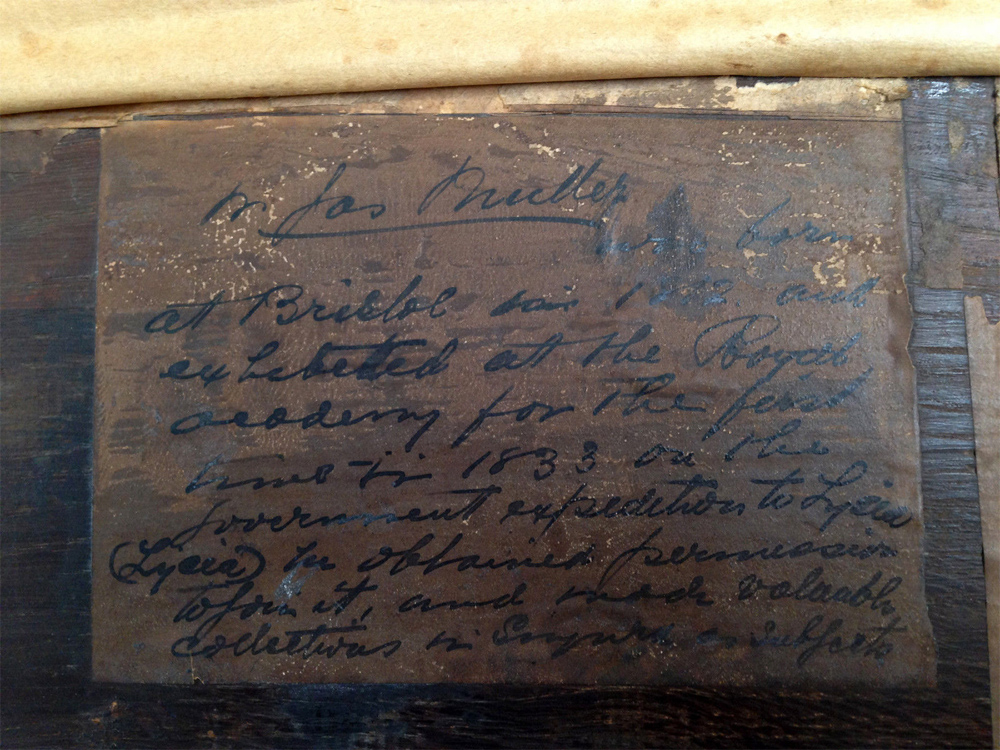 W. Jas Muller
was born
at Bristol in 1812 and
exhibited at the Royal
academy for the first
time in 1833 on the
government expedition to Lycia
(Lycia) he obtained permission
to join it, and made valuable
collections in Smyrna subjects